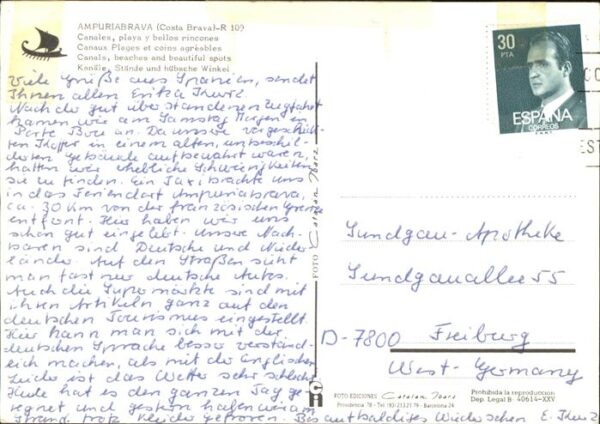 AMPURIABRAVA (Costa Brava)-R 109
Canales, playa y bellos rincones
Canaux Plages et coins agréables
Canals, beaches and beautiful spots
Kanäle, Stände und hübsche Winkel
Viele Grüße aus Spanien, sendet
Ihnen allen Erika Kunz.
Nach der gut überstandenen Zugfahrt
kamen wir am Samstag Morgen in
Porte Bou an. Da unsre vorgeschick-
ten Koffer in einem alten, unbeschil-
derten Gebäude aufbewahrt waren,
hatten wir erhebliche Schwierigkeiten
sie zu finden. Ein Taxi brachte uns
in das Feriendorf Ampuriabrava,
ca. 30 km von der französischen Grenze
entfernt. Hier haben wir uns
schon gut eingelebt. Unsre Nach-
baren sind Deutsche und Nieder
länder. Auf den Straßen sieht
man fast nur deutsche Autos.
Auch die Supermärkte sind mit
ihren Artikeln ganz auf den
deutschen Tourismus eingestellt.
Hier kann man sich mit der
deutschen Sprache besser verständ-
lich machen, als mit der Englischen
Leider ist das Wetter sehr schlecht.
Heute hat es den ganzen Tag ge-
regnet und gestern haben wir am
Strand trotz Kleider gefroren. Bis auf baldiges Wiedersehen E. Kunz
30
PTA
ESPAÑA
CORREOS
EST
FOTO Catalan Ibars
Sundgau-Apotheke
Sundgauallee 55
D-7800 Freiburg
West-Germany
FOTO EDICIONES Catalan Ibars
Providencia 78 - Tel. (93) 213.21.79 - Barcelona 24
Prohibida la reproducción
Dep. Legal B 40614-XXV